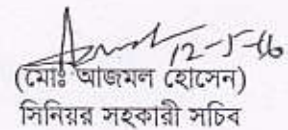 12-5-16
(মোঃ আজমল হোসেন)
সিনিয়র সহকারী সচিব